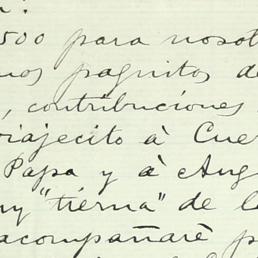 500 para nosot
nos pagnitos de
, contribuciones
viajecito à Cuer
Papa y à Ang
ny "tierna" de la
acompañarè p